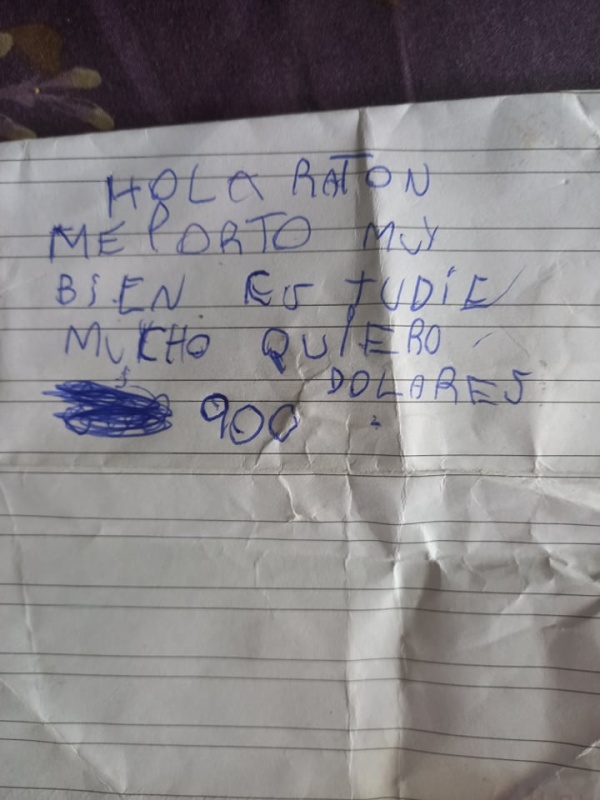 HOLA RATON
ME PORTO MUY
BIEN ESTUDIE
MUCHO QUIERO
900 DOLARES